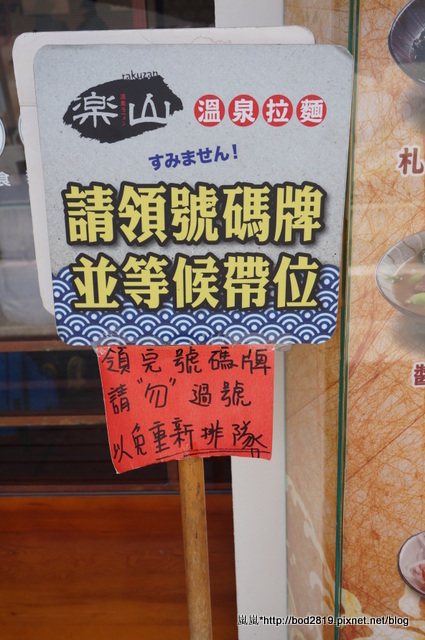 rakuzan
楽山
溫泉拉麵
すみません!
請領號碼牌
並等候帶位
領完號碼牌
請"勿"過號
以免重新排隊
食
札
醬
嵐嵐*http://bod2819.pixnet.net/blog